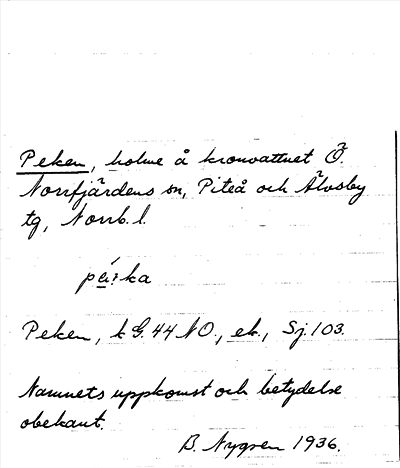 Peken, holme å kronvattnet Ö.
Norrfjärdens sn, Piteå och Älvsby
tg, Norrb. l.
pä́:ka
Peken, k G. 44 NO., ek., Sj. 103.
Namnets uppkomst och betydelse
obekant.
B. Nygren 1936.